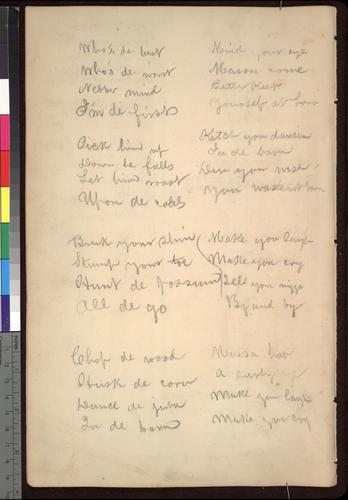 Who's de best
Who's de worst
Nebber mind
I'm de first
Pick him up
Down he falls
Let him roast
Upon de coals
Bark your shin
Stump your toe
Hunt de possum
All de go
Chop de wood
Husk de corn
Dance de juba
In de barn
Mind your eye
Massa come
Better keep
Yourself at home
Ketch you dancin
In de barn
Den you wish
You wassent born
Make you laugh
Make you cry
Sell you nigga
By and by
Massa hab
A
Make you laugh
Make you cry